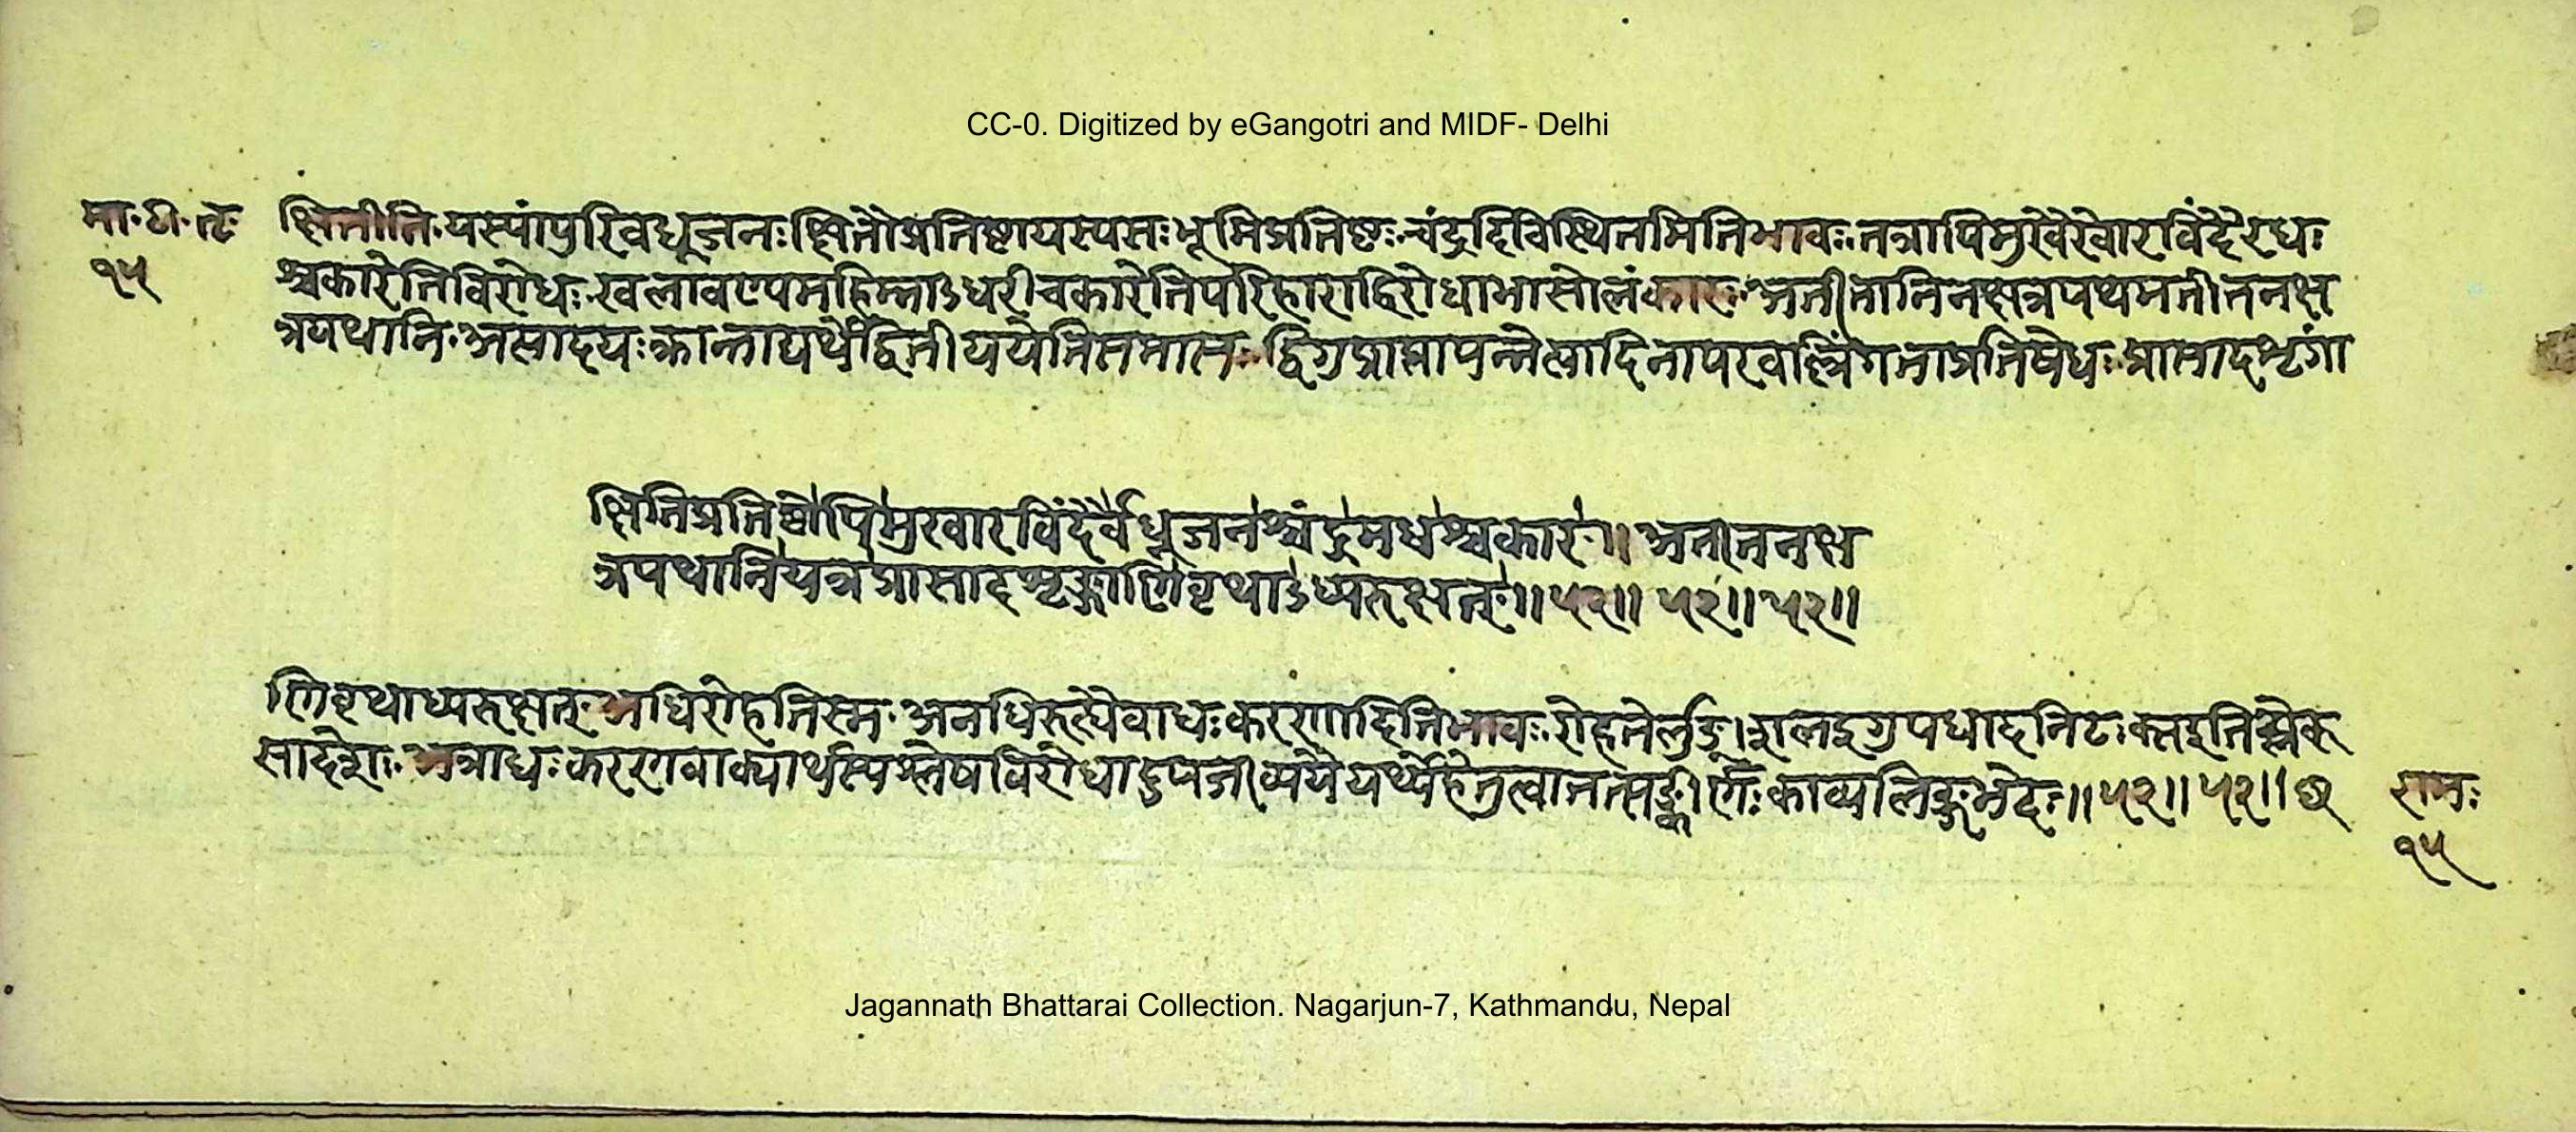 CC-0. Digitized by eGangotri and MIDF- Delhi
मा॰ टी॰ तृ॰ क्षितीति॰ यस्यांपुरिवधूजनः क्षितौप्रतिष्ठायस्यसः भूमिप्रतिष्ठः चंद्रदिविस्थितमितिभावः तत्रापिमुखैरेवारविंदैरधः
१५ श्चकारेतिविरोधः स्वलावण्यमहिम्नाऽधरीचकारेतिपरिहाराद्विरोधाभासोलंकारः अतीतानिनक्षत्रपथमतीतनक्ष
त्रपथानि॰ अत्यादयःक्रान्ताद्यर्थेद्वितीययेतिसमासः द्विगुप्राप्तापन्नेत्यादिनापरवल्लिंगताप्रतिषेधः प्रासादशृंगा
क्षितिप्रतिष्ठोपिमुखारविंदैर्वधूजनश्चंद्रमधश्चकार॥ अतीतनक्ष
त्रपथानियत्रप्रासादशृङ्गाणिवृथाऽध्यरुक्षत्॥५२॥ ५२॥५२॥
णिवृथाध्यरुक्षत् अधिरोहतिस्म॰ अनधिरुह्यैवाधःकरणादितिभावः रोहतेर्लुङ्।शलइगुपधादनिटःक्सइतिच्लेःक्
सादेशः अत्राधःकरणवाक्यार्थस्यश्लेषविरोधाद्युपजीव्य हेतुत्वात्तत्सङ्कीर्णः काव्यलिङ्गभेदः॥५२॥५२॥छ रामः
१५
Jagannath Bhattarai Collection. Nagarjun-7, Kathmandu, Nepal